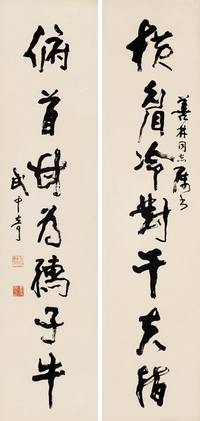 横眉冷對千夫指
善林同志属书
俯首甘为孺子牛
武中奇